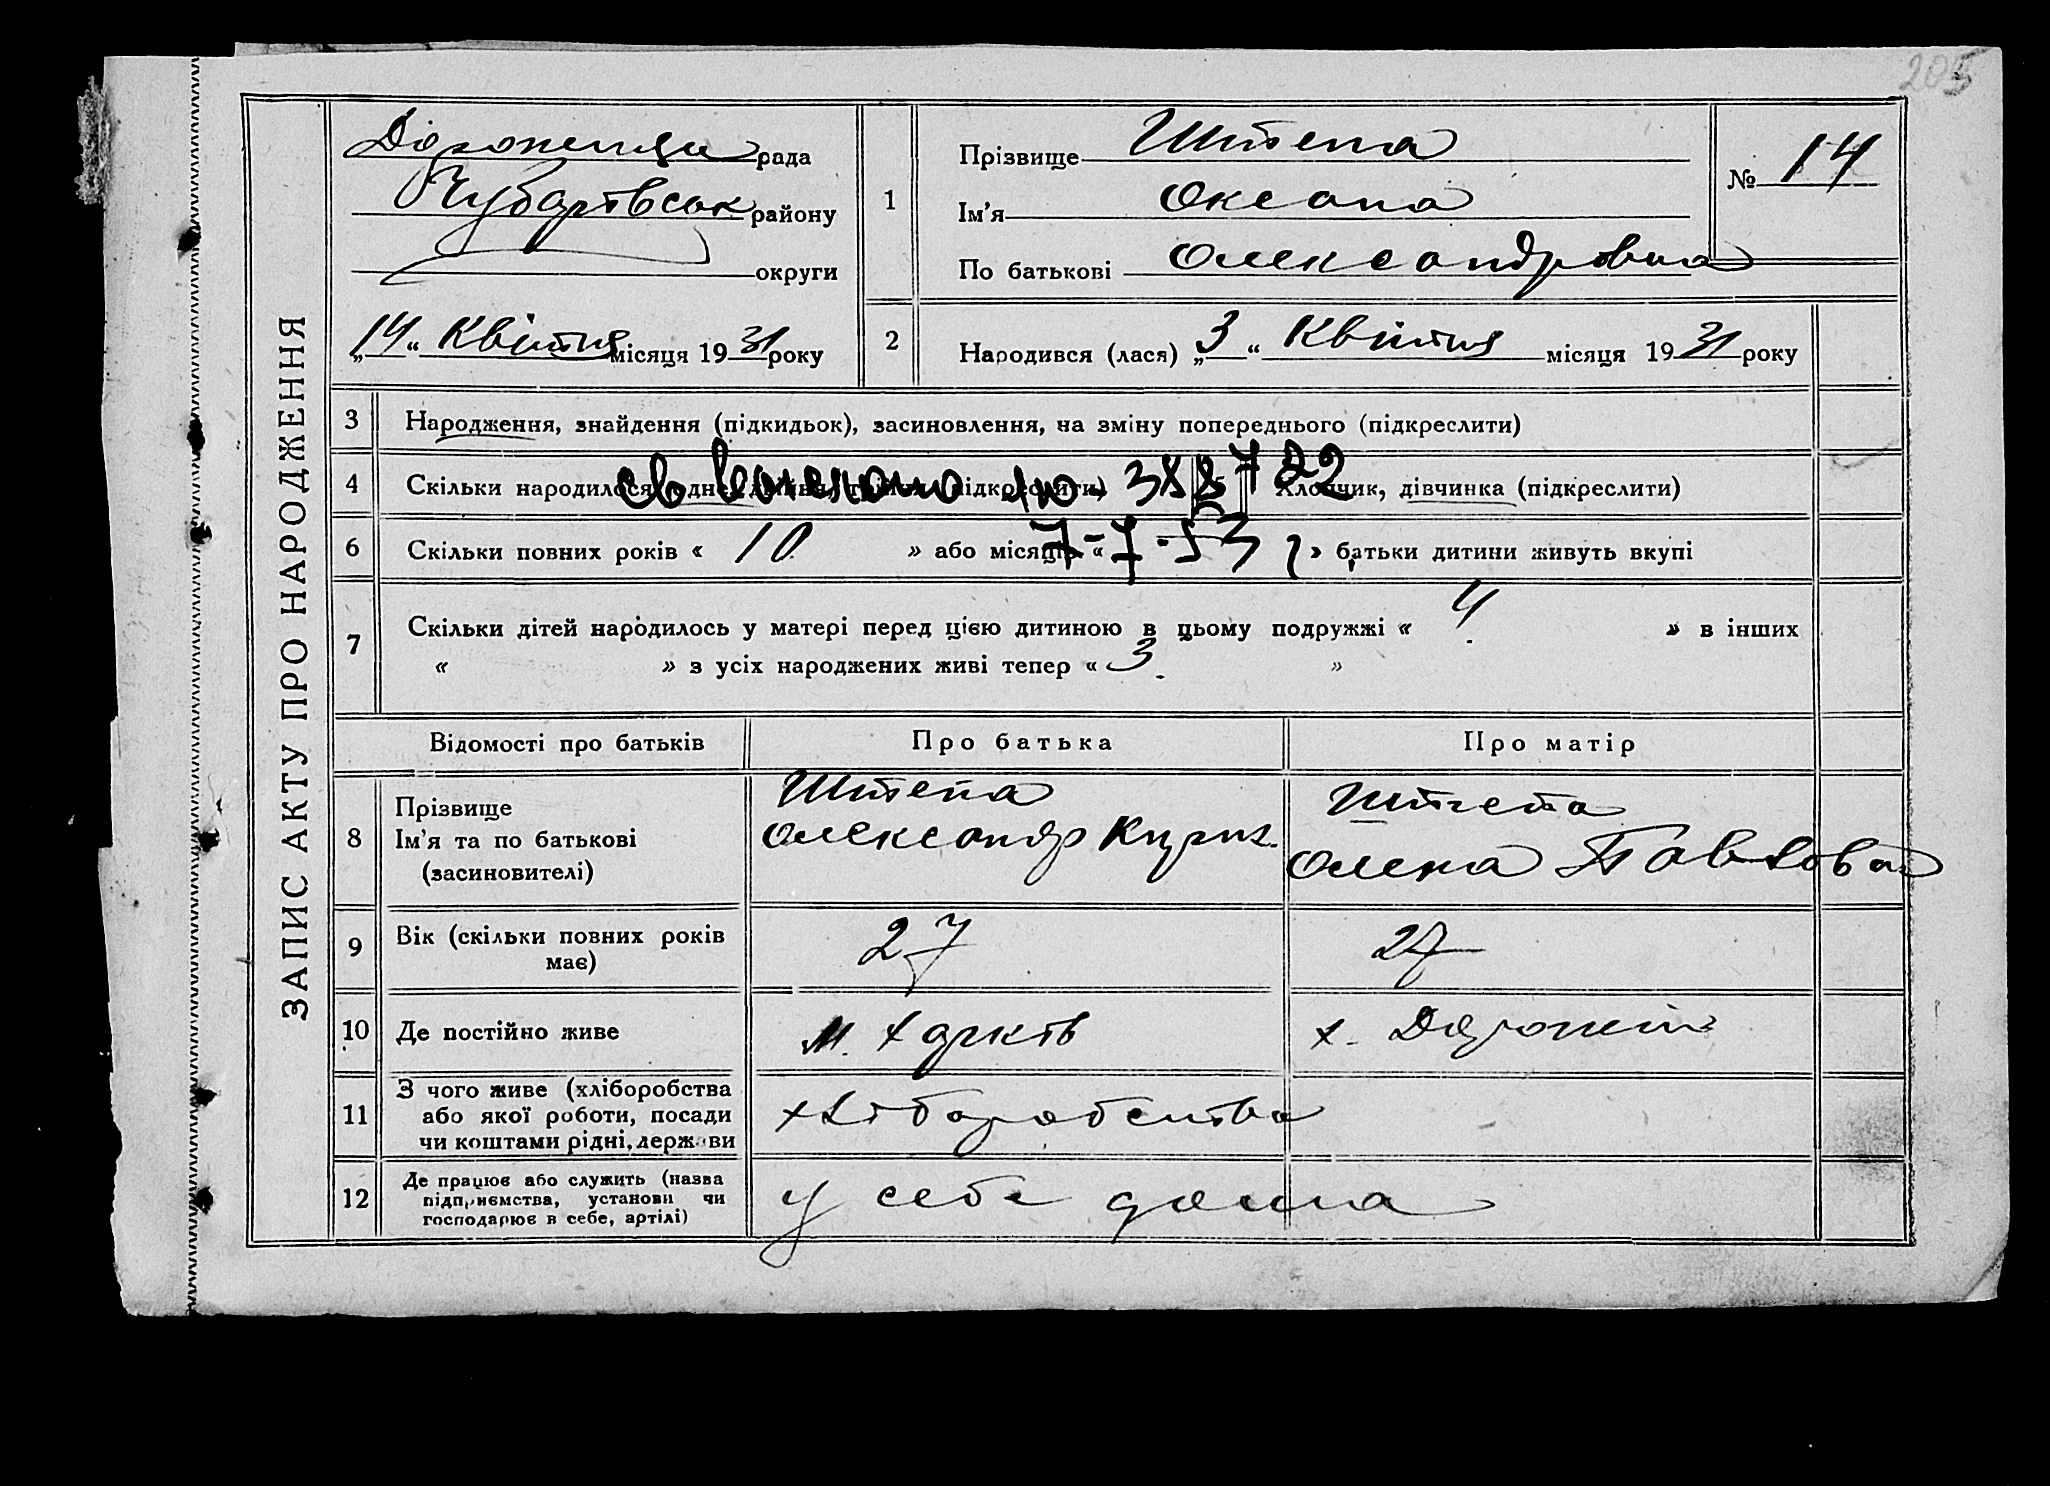 205
ЗАПИС АКТУ ПРО НАРОДЖЕННЯ
рада
Чубарівськ району
округи
„14“ Квітня місяця 1931 року
1
Прізвище Штепа
Ім'я Оксана
По батькові Олександровна
№ 14
2
Народився (лася) „3“ Квітня місяця 1931 року
3 Народження, знайдення (підкидьок), засиновлення, на зміну попереднього (підкреслити)
4 Скільки народилося: одне, двійня, трійня (підкреслити) 5 Хлопчик, дівчинка (підкреслити)
св 388722
6 Скільки повних років « 10 » або місяців « » батьки дитини живуть вкупі
7-7-53 г
7 Скільки дітей народилось у матері перед цією дитиною в цьому подружжі « 4 » в інших
« » з усіх народжених живі тепер « 3 »
Відомості про батьків Про батька Про матір
8 Прізвище
Ім'я та по батькові
(засиновителі)
Штепа
Олександр
Штепа
Олена Павлова
9 Вік (скільки повних років має) 27 27
10 Де постійно живе м. Харків х.
11 З чого живе (хліборобства
або якої роботи, посади
чи коштами рідні, держави
хліборобства
12 Де працює або служить (назва
підприємства, установи чи
господарює в себе, артілі)
у себе дома